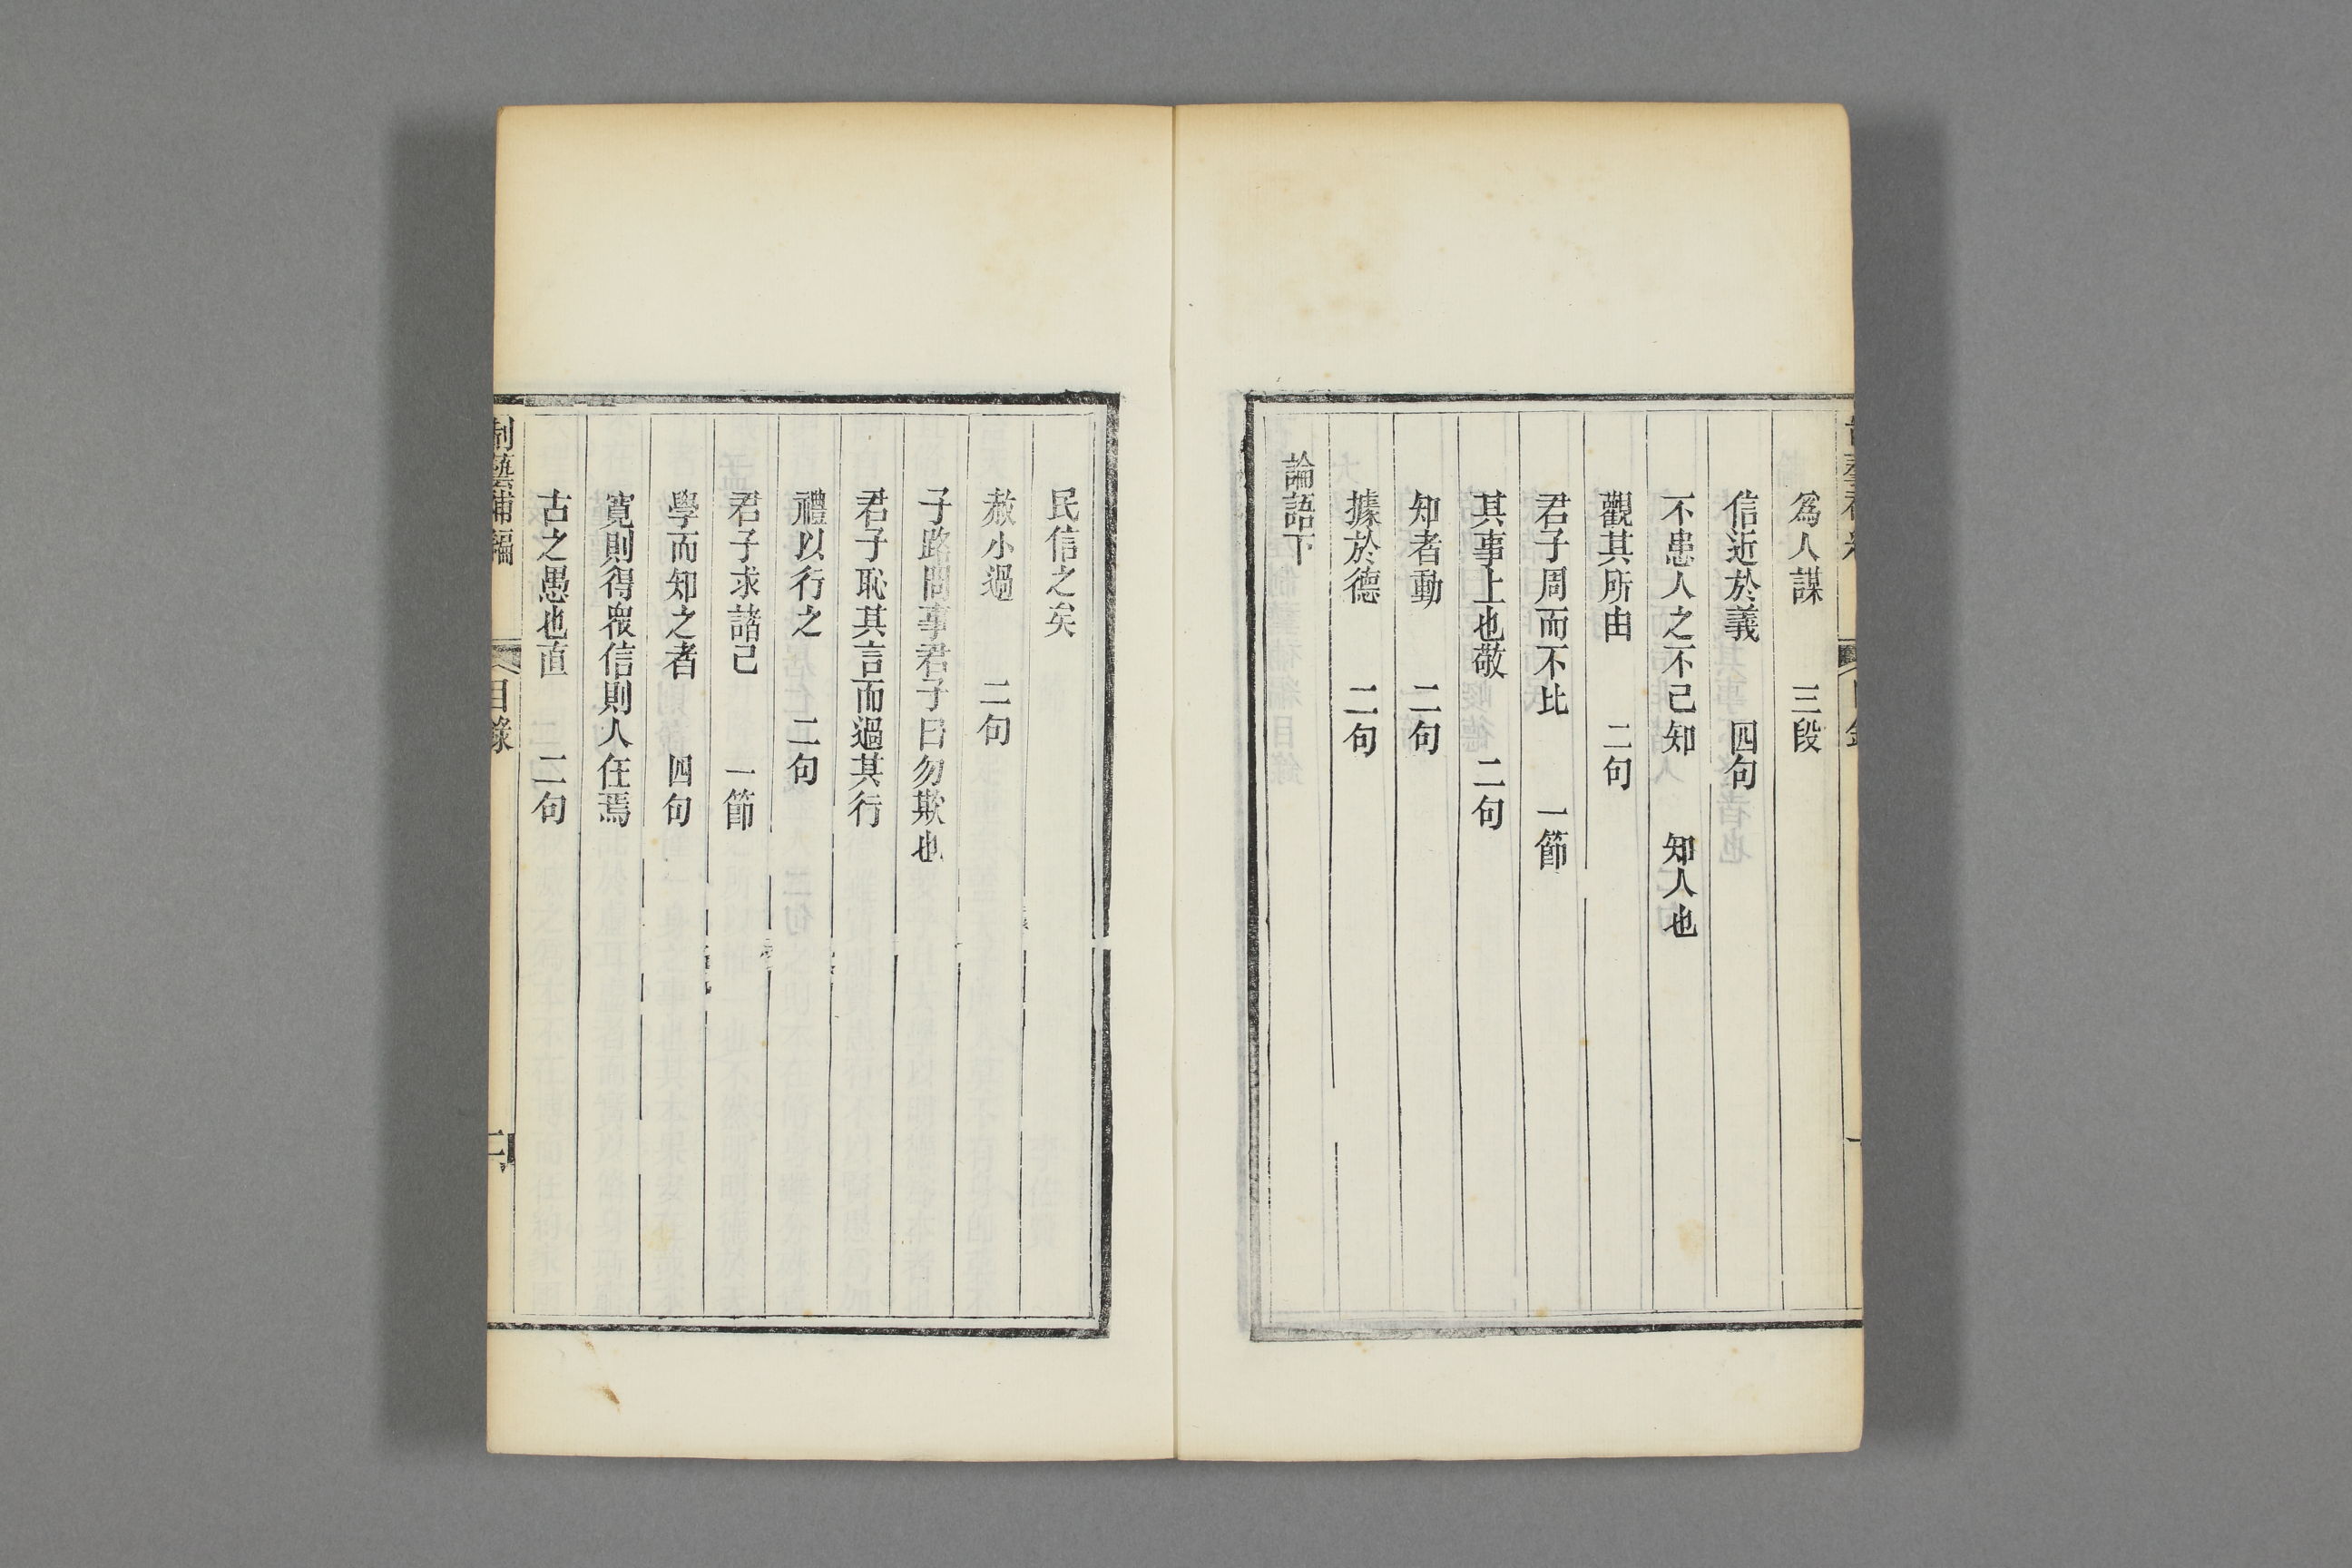 為人謀 三段
信近於義 四句
不患人之不己知 知人也
觀其所由 二句
君子周而不比 一節
其事上也敬 二句
知者動 二句
據於德 二句
論語下
民信之矣
赦小過 二句
子路問事君子曰勿欺也
君子恥其言而過其行
禮以行之 二句
君子求諸己 一節
學而知之者 四句
寬則得衆信則人任焉
古之愚也直 二句
制藝補編 目錄 二